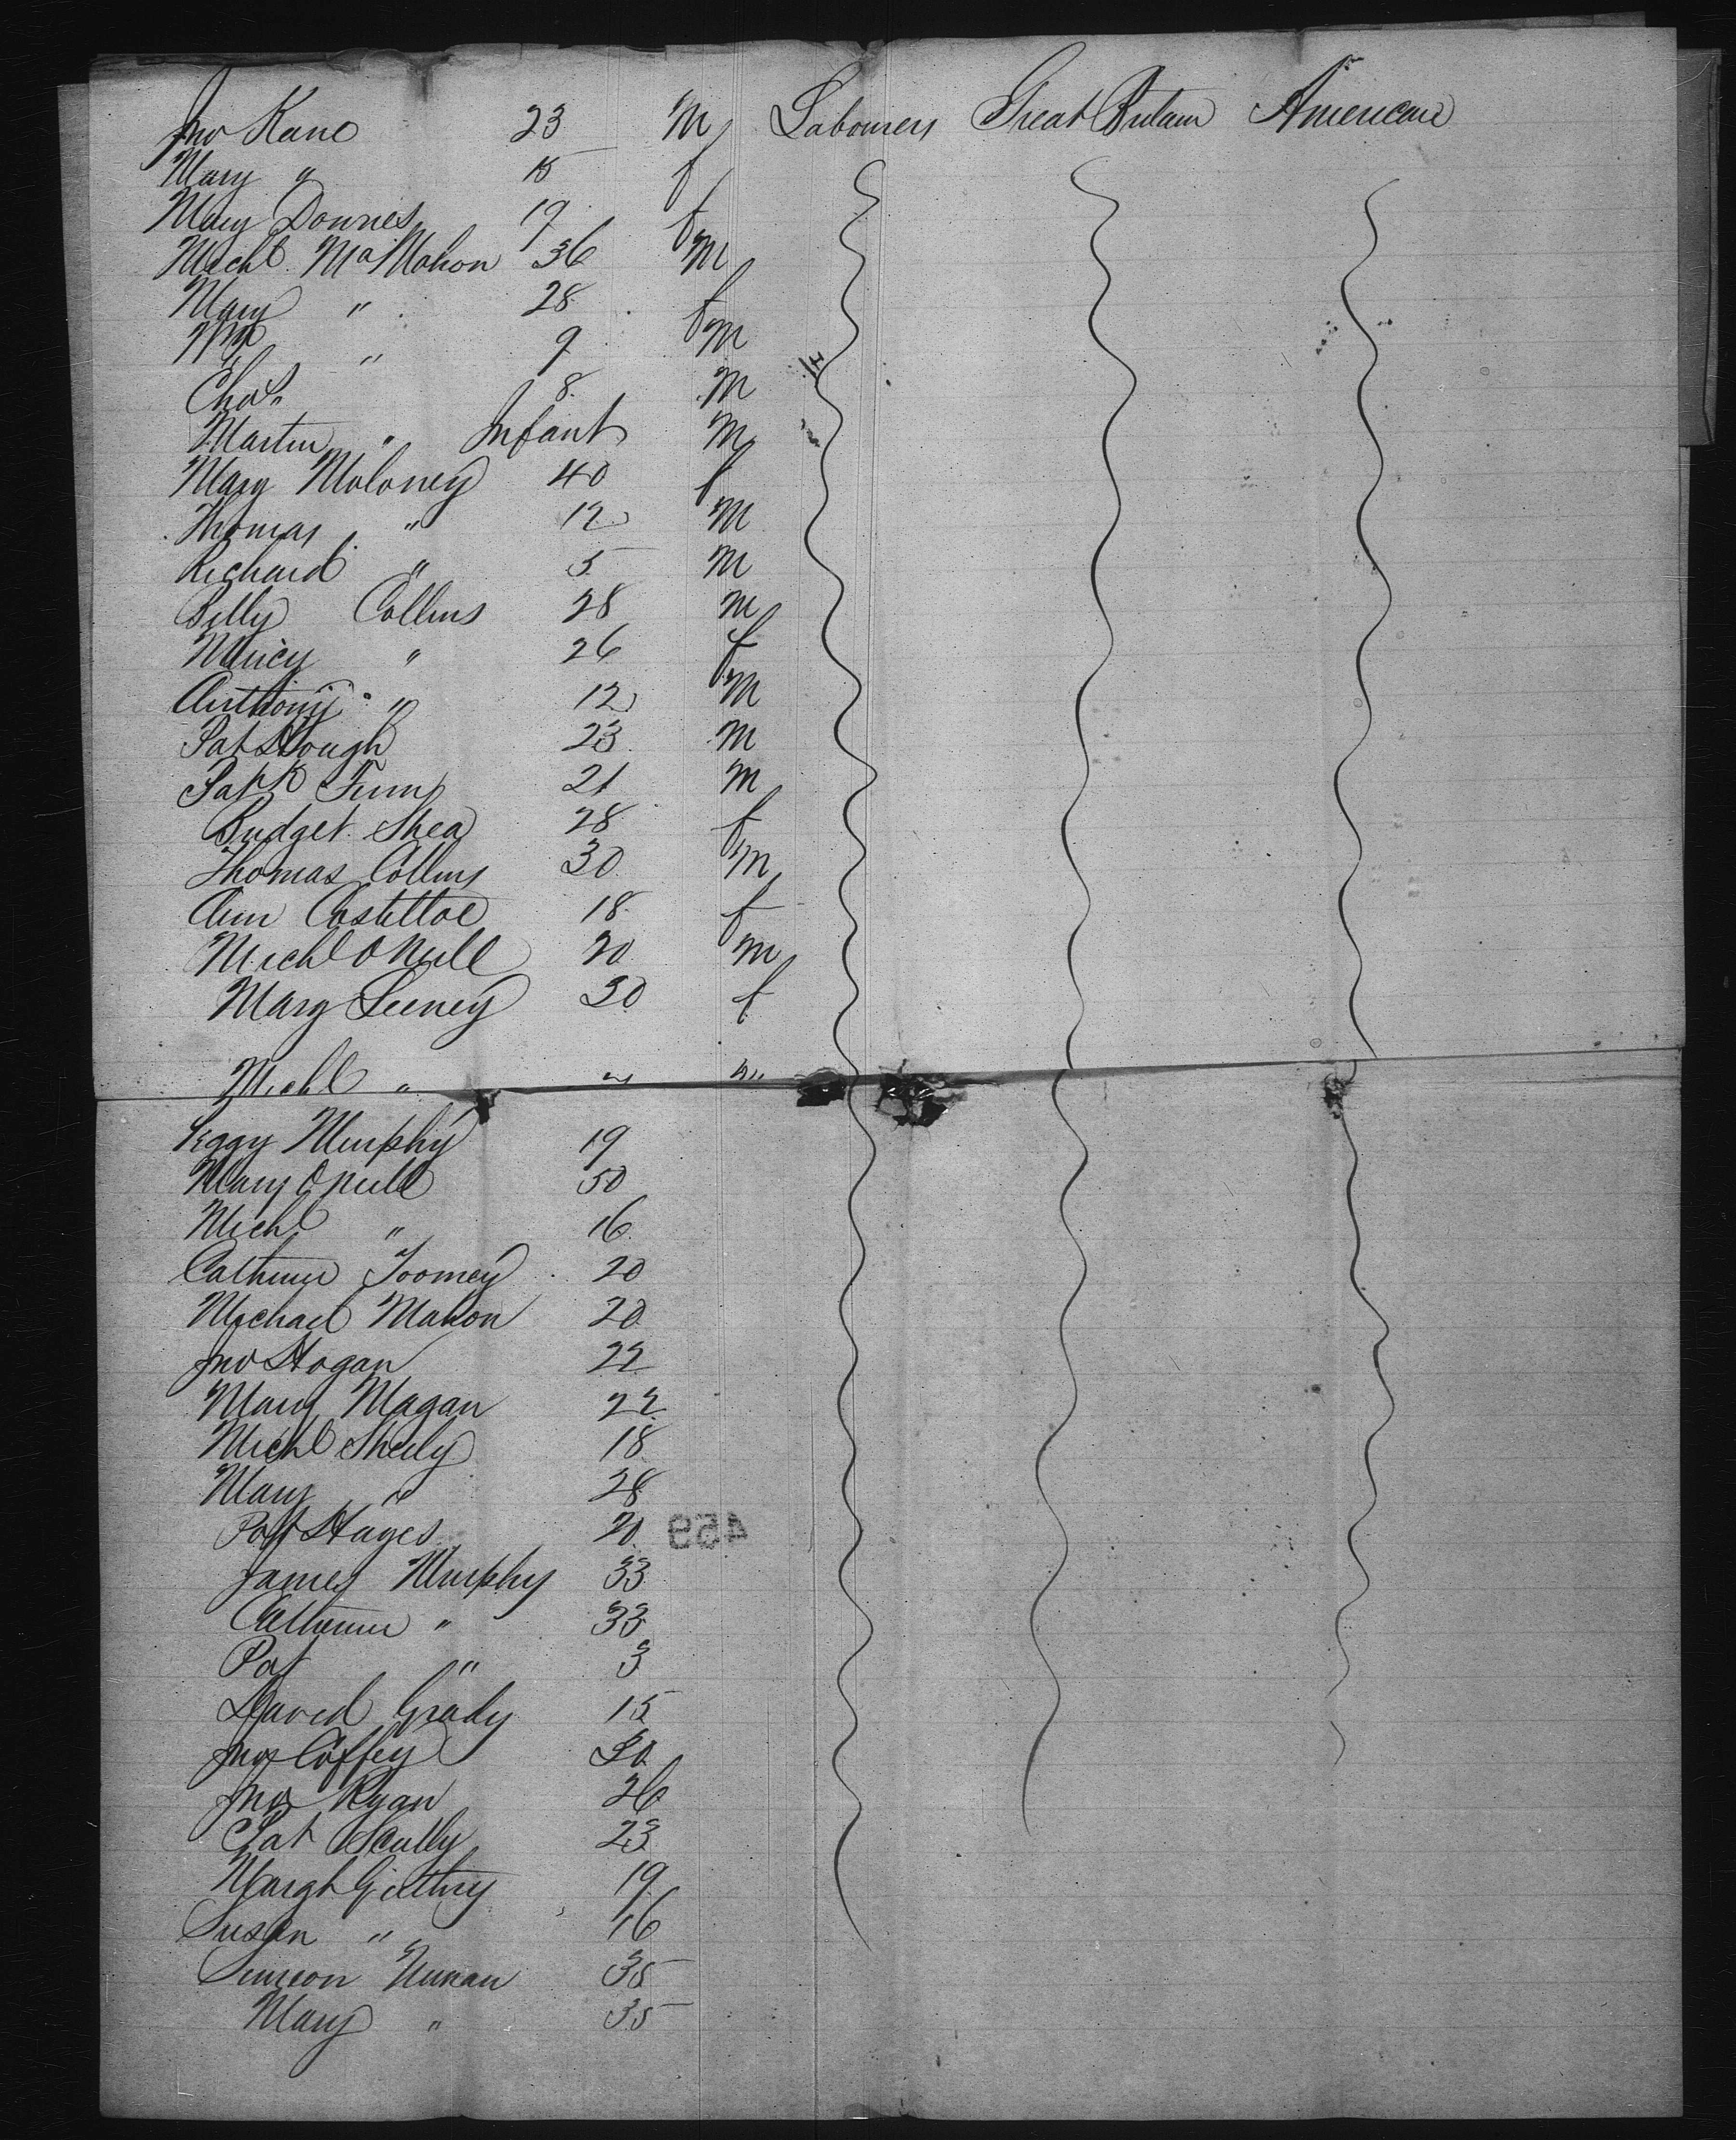 Jno Kane 23 M Labourers Great Britain American
Mary " 15 f
Mary Downes 19 f
Michl McMahon 36 M
Mary " 28 f
Wm " 9 M
Chas " 8 M
Martin " Infant M
Mary Moloney 40 f
Thomas " 12 M
Richard " 5 M
Billy Collins 28 M
" 26 f
Anthony " 12 M
Pat Hough 23 M
Patk 21 M
Bridget Shea 28 f
Thomas Collins 30 M
Ann Costelloe 18 f
Michl O Neill 20 M
Mary 30 f
Michl "
Peggy Murphy 19
Mary O Neill 50
Michl " 16
Catherine Toomey 20
Michael Mahon 20
Jno Hogan 22
Mary Magan 22
Michl Sheely 18
Mary " 28
Pat Hayes 20
459
James Murphy 33
Catherine " 33
Pat " 3
David Grady 15
Jno Coffey 30
Jno Ryan 26
Pat Scully 23
Margt 19
Susan " 16
Simeon Nunan 35
Mary " 35